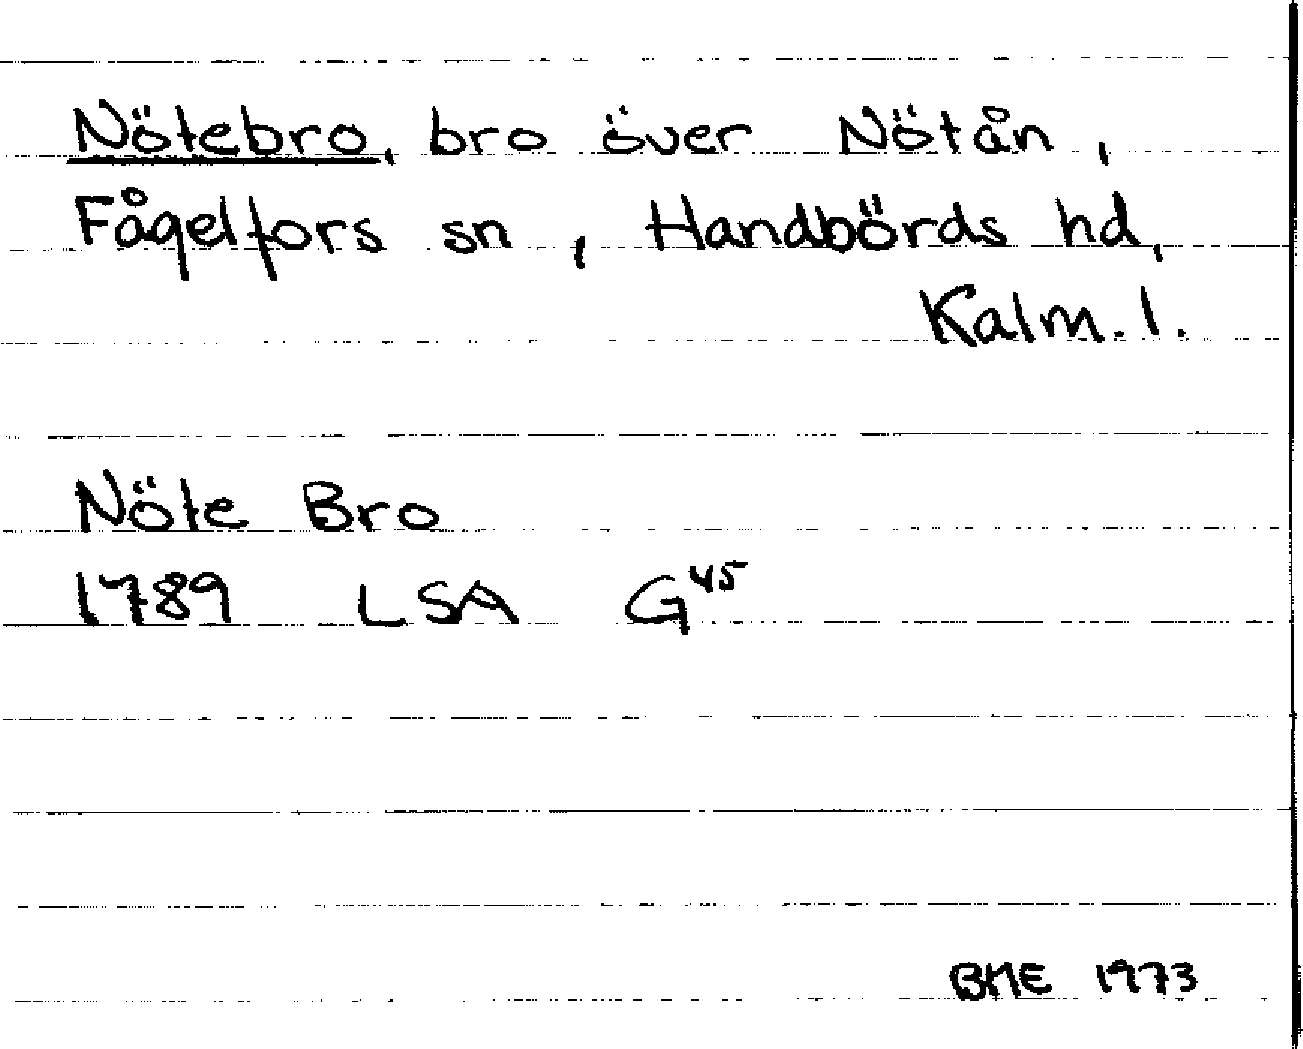 Nötebro, bro över Nötån,
Fågelfors sn, Handbörds hd,
Kalm. l.
Nöte Bro
1789 LSA G 45
BME 1973